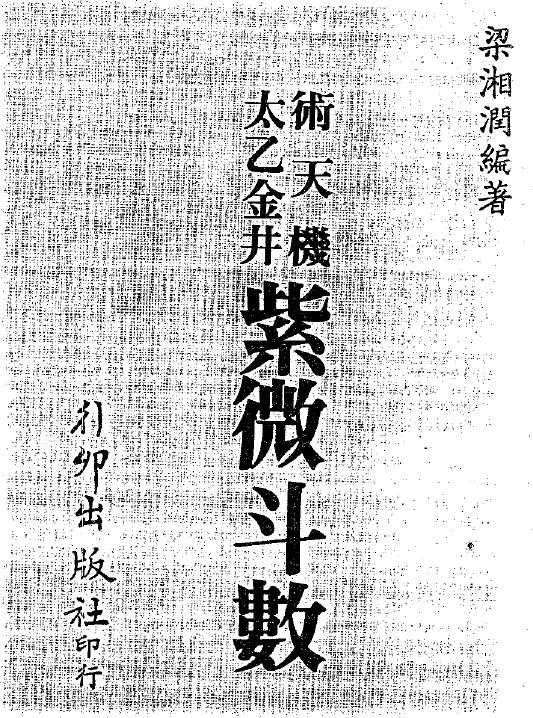 梁湘潤編著
術天機
太乙金井
紫微斗數
行卯出版社印行